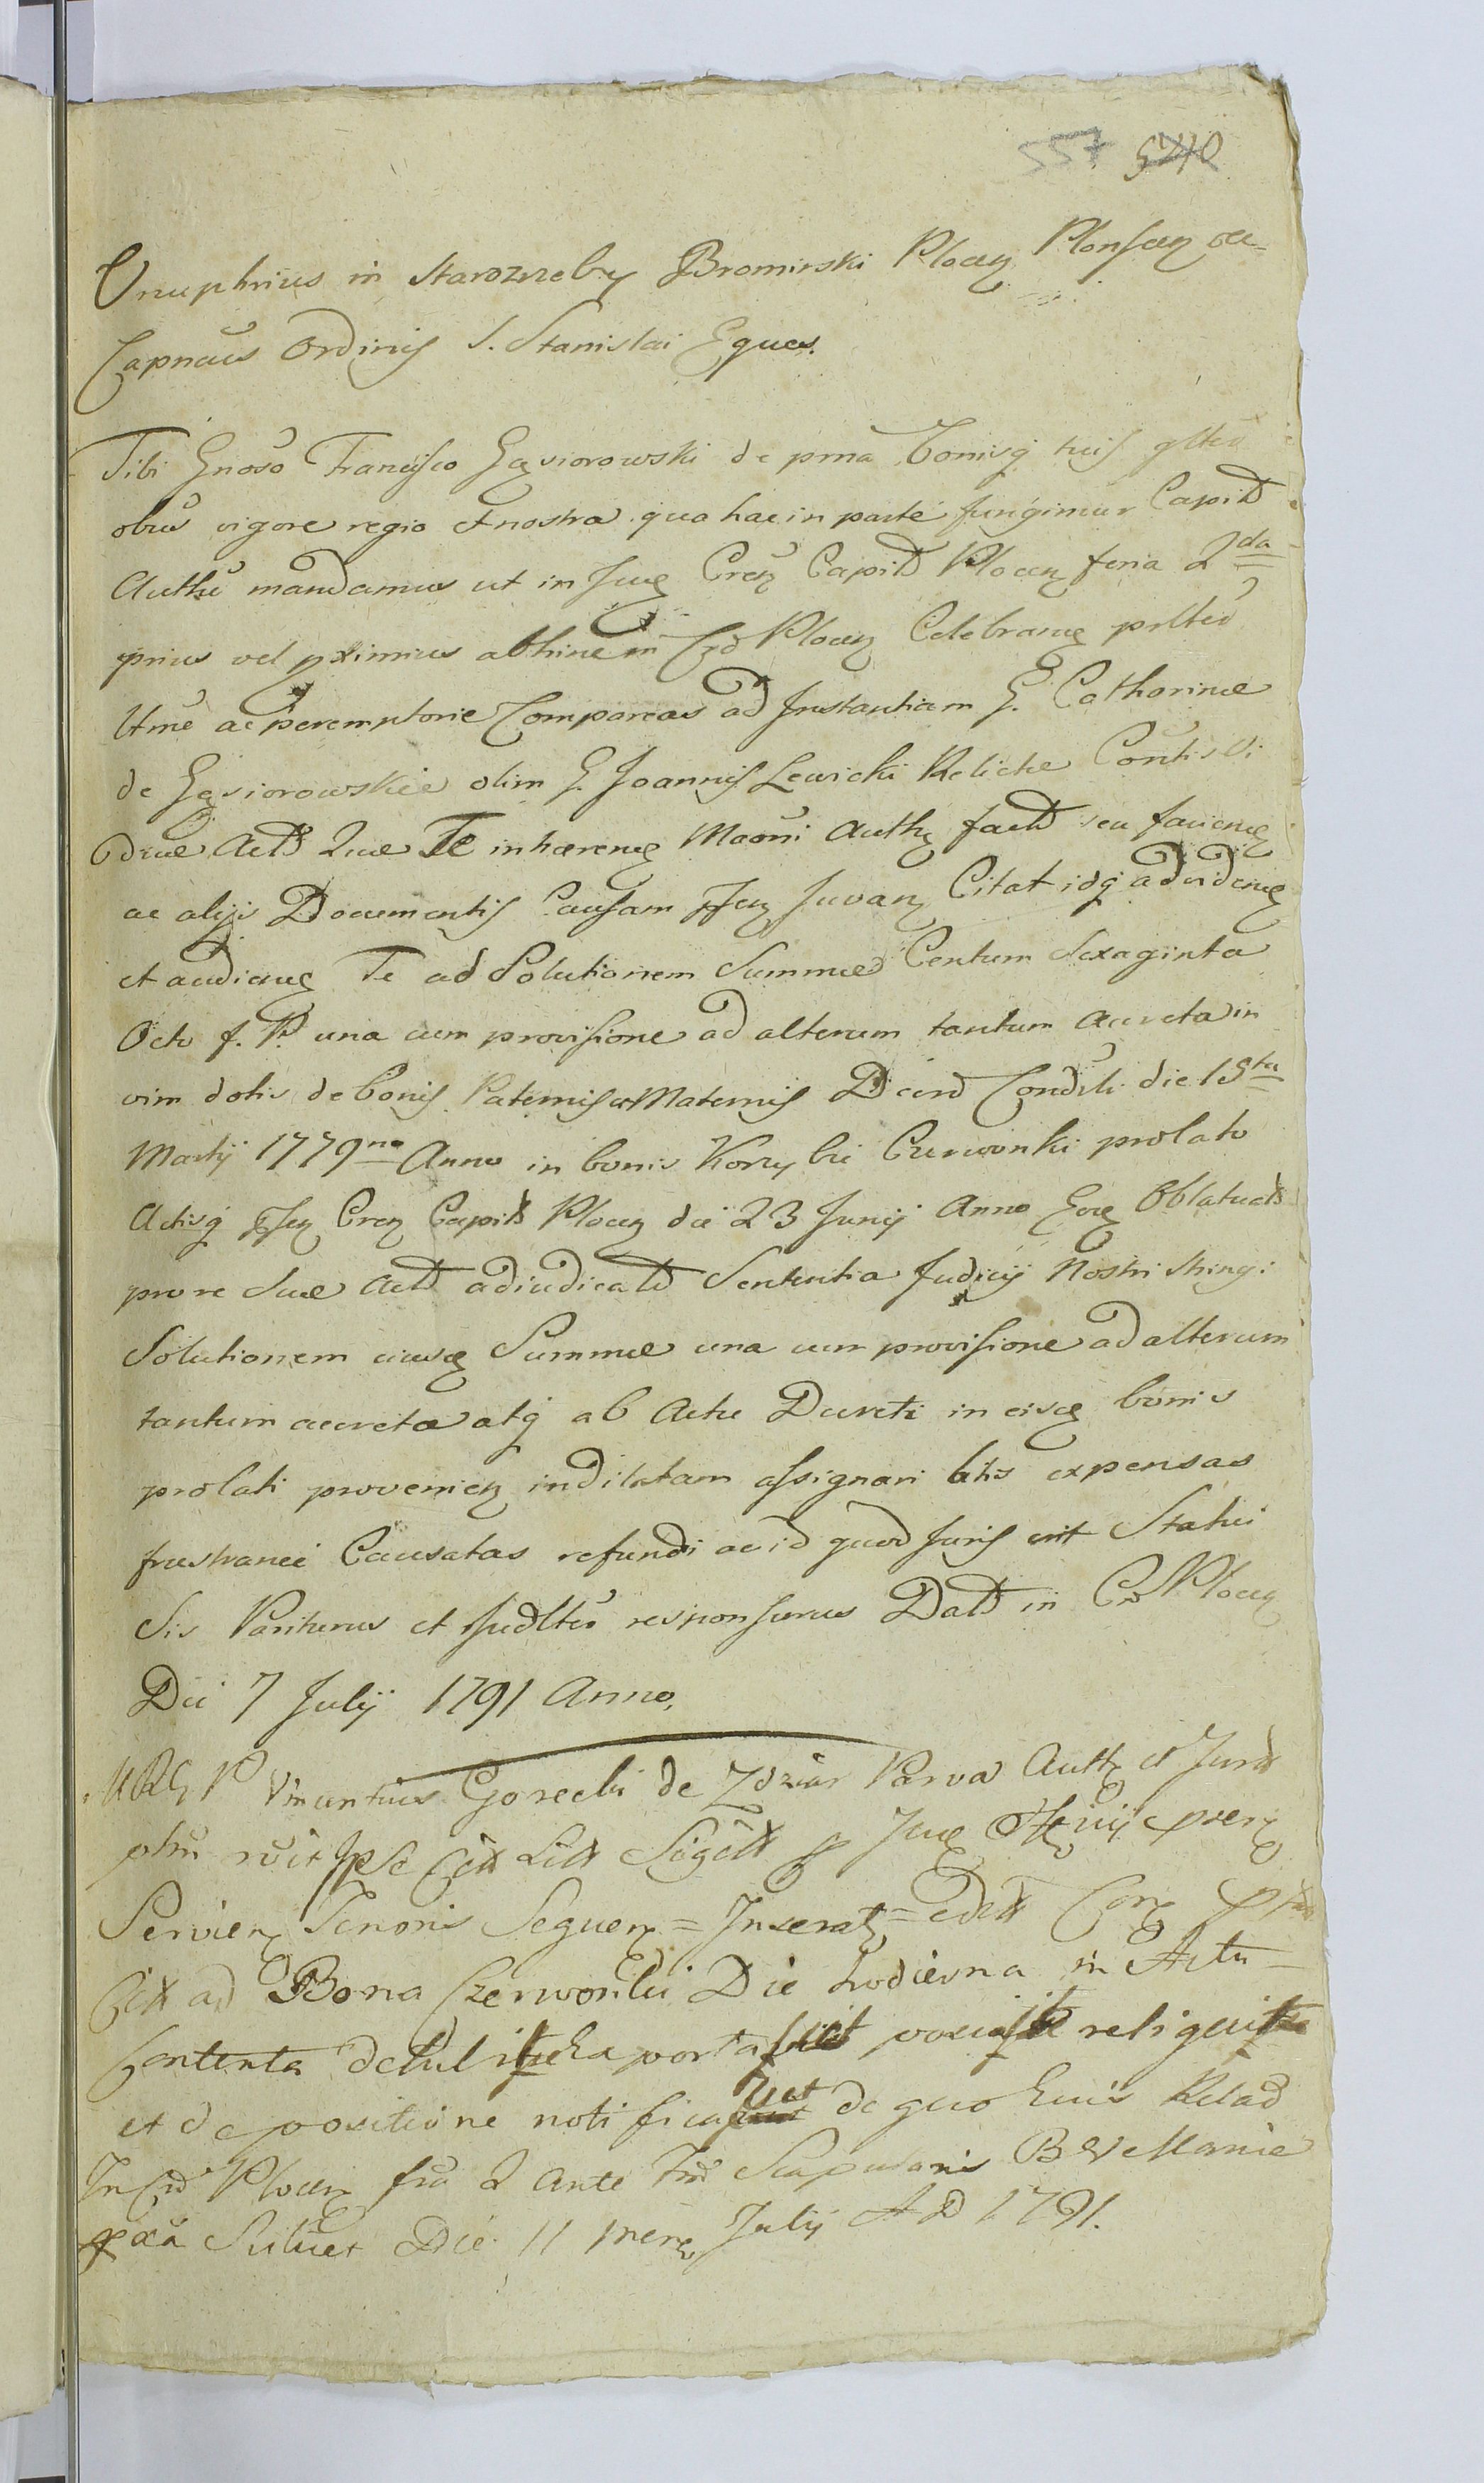 557 5210
Onuphrius in Starozreby Bromirski Plocen Plonscen etc
Capneus Ordinis S. Stanislai Eques.
Tibi Gnoso Francisco Gąsiorowski de pma bonisq tuis gltr
obus vigore regio et nostra qua hac in parte fungimur Capit
Authe mandamus ut in Jud Cren Capit Plocen feria 2da
prius vel pximius abhinc in Cro Plocen Celebran psltr
ltme ac peremptorie Compareas ad Instantiam G. Catharinæ
de Gąsiorowskie olim G. Joannis Lewicki Relictæ Contislis
Vduæ Act Quæ Te inhæren Maoni Auth fact seu facien
ac alys Documentis Causam Juvan Citat idq ad viden
et audien Te ad Solutionem Summæ Centum Sexaginta
Octo f. P. una cum provisione ad alterum tantum accreta in
vim dotis de bonis Paternis et Maternis Decro Condli die 15ta
Martij 1779no Anno in bonis Korzybie Czerwonki prolato
Actisq Cren Capit Plocen die 23 Junij Anno Eod Oblatuat
pro re Suæ Act adiudicat Sententia Judicij Nostri stringi
Solutionem eiusd Summæ una cum provisione ad alterum
tantum accretæ atq ab Actu Decreti in eisd bonis
prolati provenien indilatam assignari litis expensas
frustranee Causatas refundi ac id quod Juris erit Statui
Sis Pariturus et Judltr responsurus Dat in Cro Plocen
Die 7 Julij 1791 Anno.
MRGP Vincentius Gorecki de Zdziar Parva Auth et Jurat
Ipse Cit Litt Sigill p Jud Offcij pren
Servien Tenoris Sequen = Inserat = edit Cor
Cit ad Bona Czerwonki Die hodierna in Actu
Contenta detulit Exportavit posuit reliquit
et de positione notificavit de quo Eius Relao
In Cro Plocen fria 2 Ante Fm Scapularis B V Mariæ
pxa Scilicet Die 11 Mens Julij A D 1791.